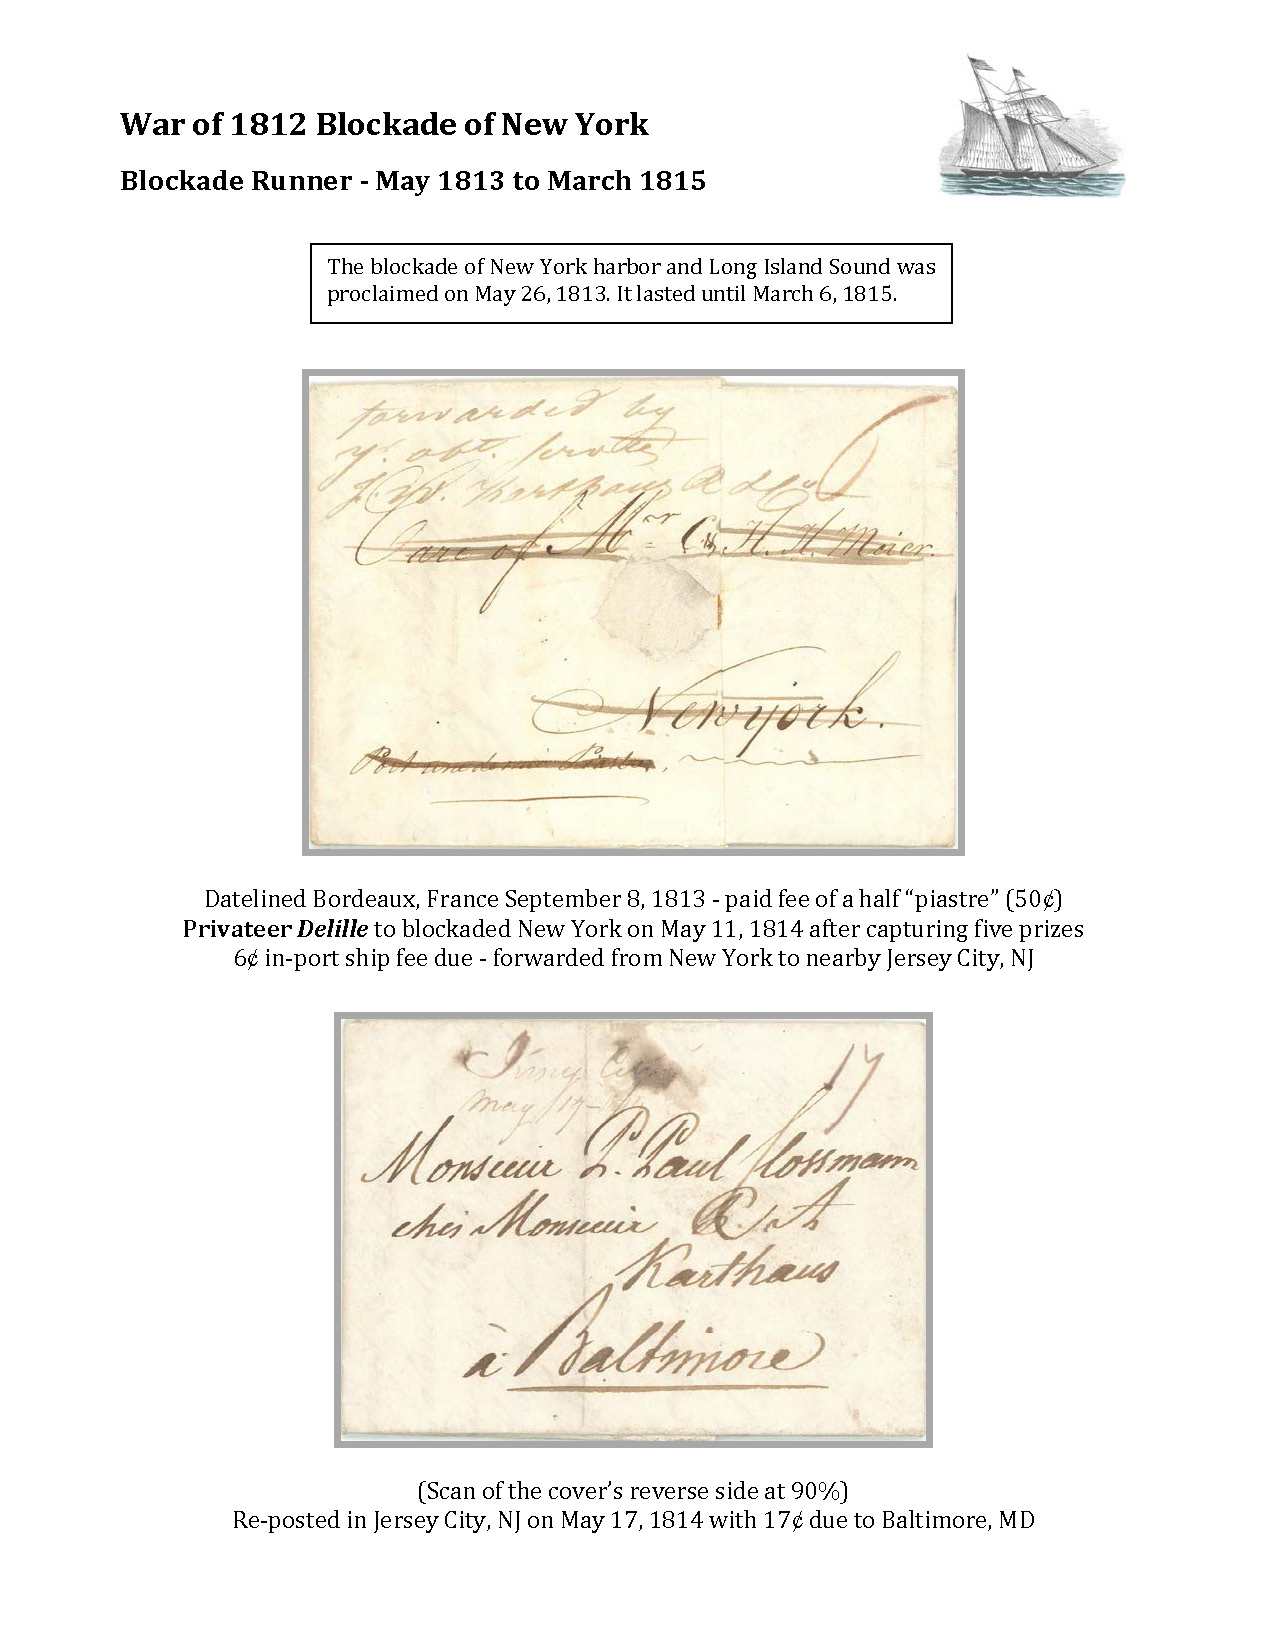 War of 1812 Blockade of New York
Blockade Runner - May 1813 to March 1815
The blockade of New York harbor and Long Island Sound was
proclaimed on May 26, 1813. It lasted until March 6, 1815.
forwarded by
yr. obt. servts
J. W. Karthaus & Co
6
Care of Mr C. H. H. Meier.
Newyork.
Port
Datelined Bordeaux, France September 8, 1813 - paid fee of a half “piastre” (50¢)
Privateer Delille to blockaded New York on May 11, 1814 after capturing five prizes
6¢ in-port ship fee due - forwarded from New York to nearby Jersey City, NJ
Jersey City
17
May 17
Monsieur P. Paul Flossmann
chez Monsieur
Karthaus
à Baltimore
(Scan of the cover’s reverse side at 90%)
Re-posted in Jersey City, NJ on May 17, 1814 with 17¢ due to Baltimore, MD